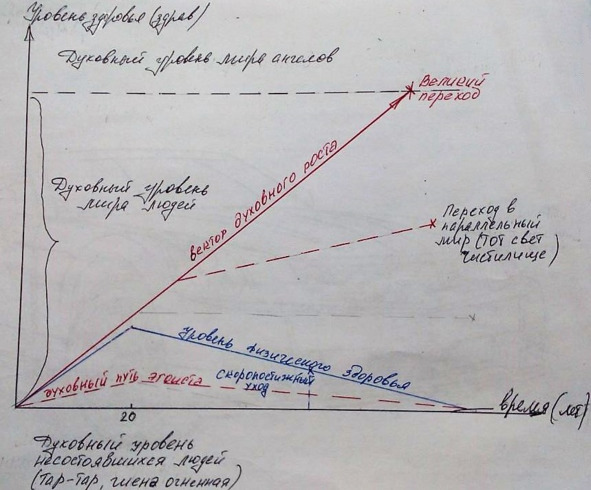 Уровень здоровья (здрав)
Духовный уровень мира ангелов
Великий
переход
вектор духовного роста
Духовный уровень
мира людей
Переход в
параллельный
мир (тот свет
чистилище)
Уровень физического здоровья
скоропостижный
уход
духовный путь эгоиста
20
время (лет)
Духовный уровень
несостоявшихся людей
(Тар-тар, гиена огненная)